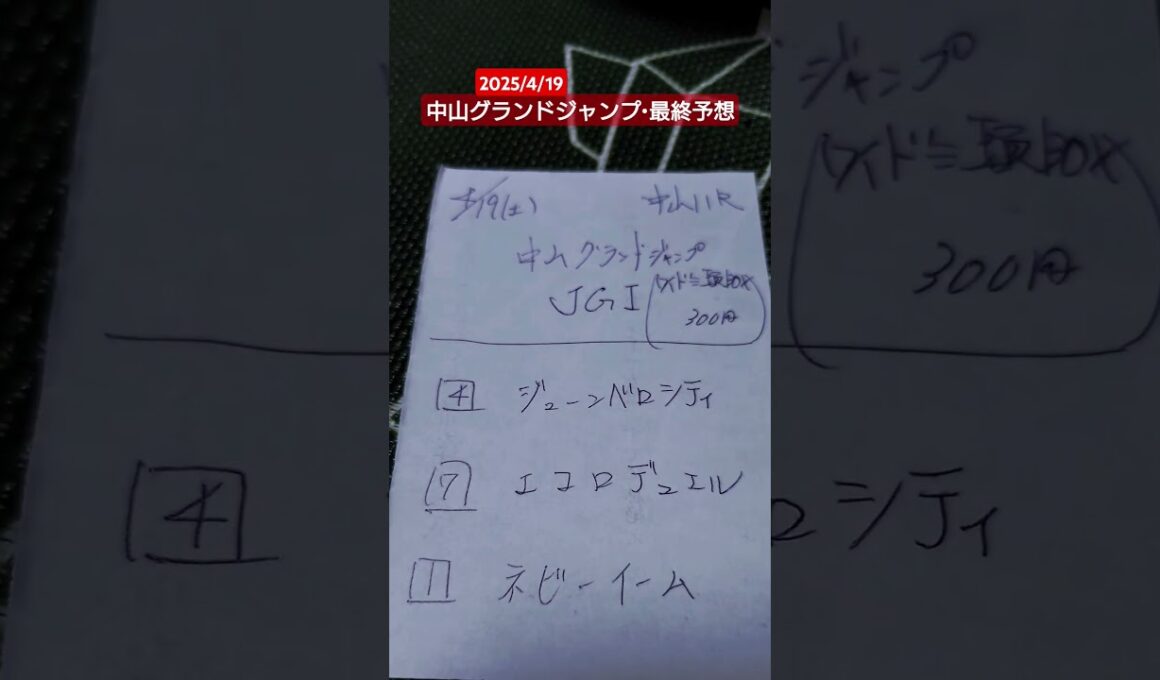 2025/4/19
中山グランドジャンプ・最終予想
4/19(土) 中山11R
中山グランドジャンプ
JGI
ワイド≡頭BOX
300円
4 ジューンベロシティ
7 エコロデュエル
1 ネビーイーム